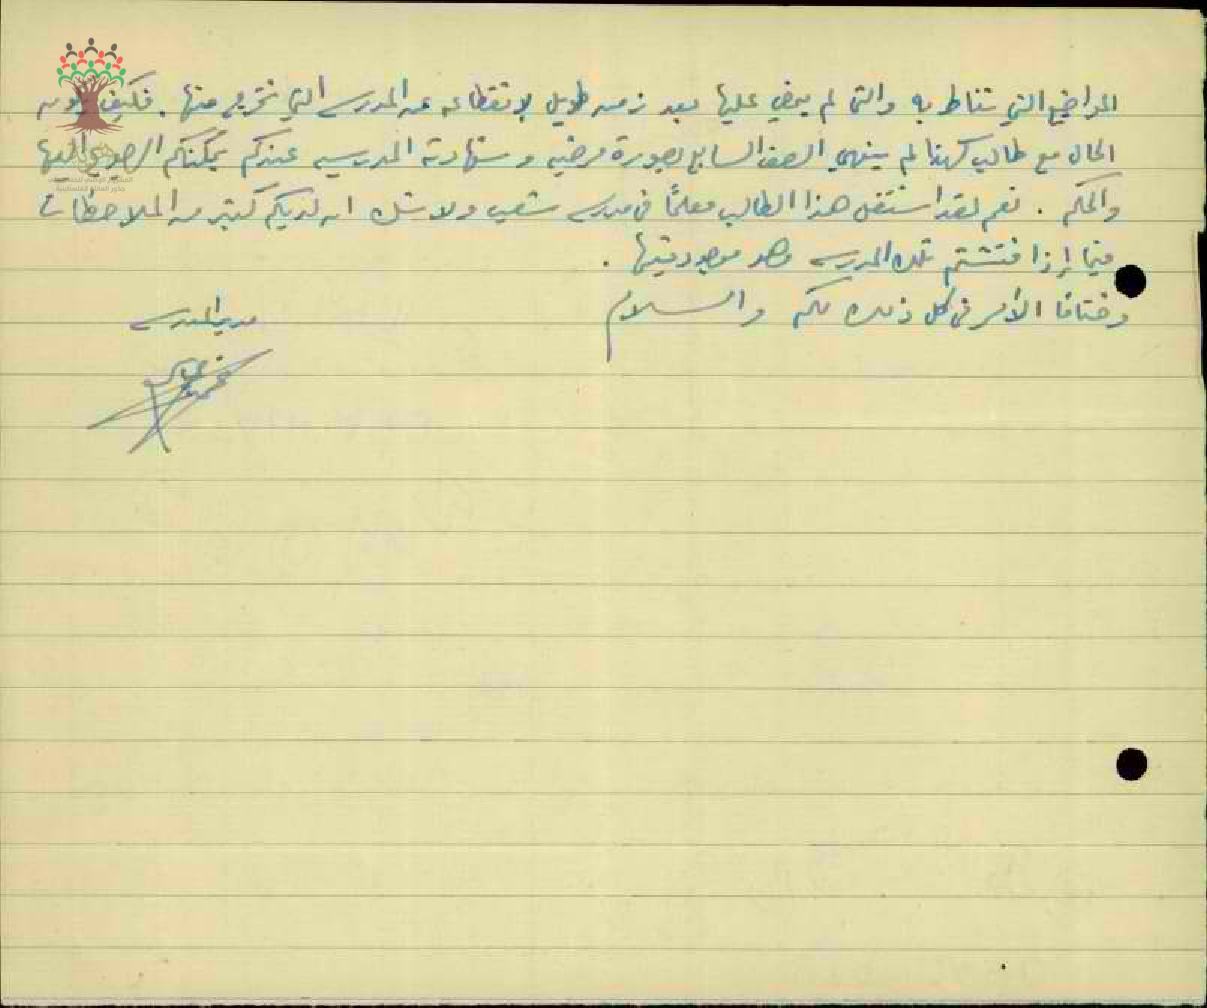 المواضيع التي تناط به والتي لم يمض عليها بعد زمن طويل لانقطاعه عن المدرسة التي تخرج منها. فكيف يكون
الحال مع طالب كهذا لم ينهي الصف السابع بصورة مرضيه وشهادته المدرسيه عندكم يمكنكم الرجوع اليها
والحكم. نعم لقد اشتغل هذا الطالب معلمًا في مدرسة شعيب ولا شك ان لديكم كثير من الملاحظات
فيما إذا فتشتم تلك المدرسه وهو موجود فيها.
وختامًا الأمر في كل ذلك لكم والسلام
مدير المدرسه